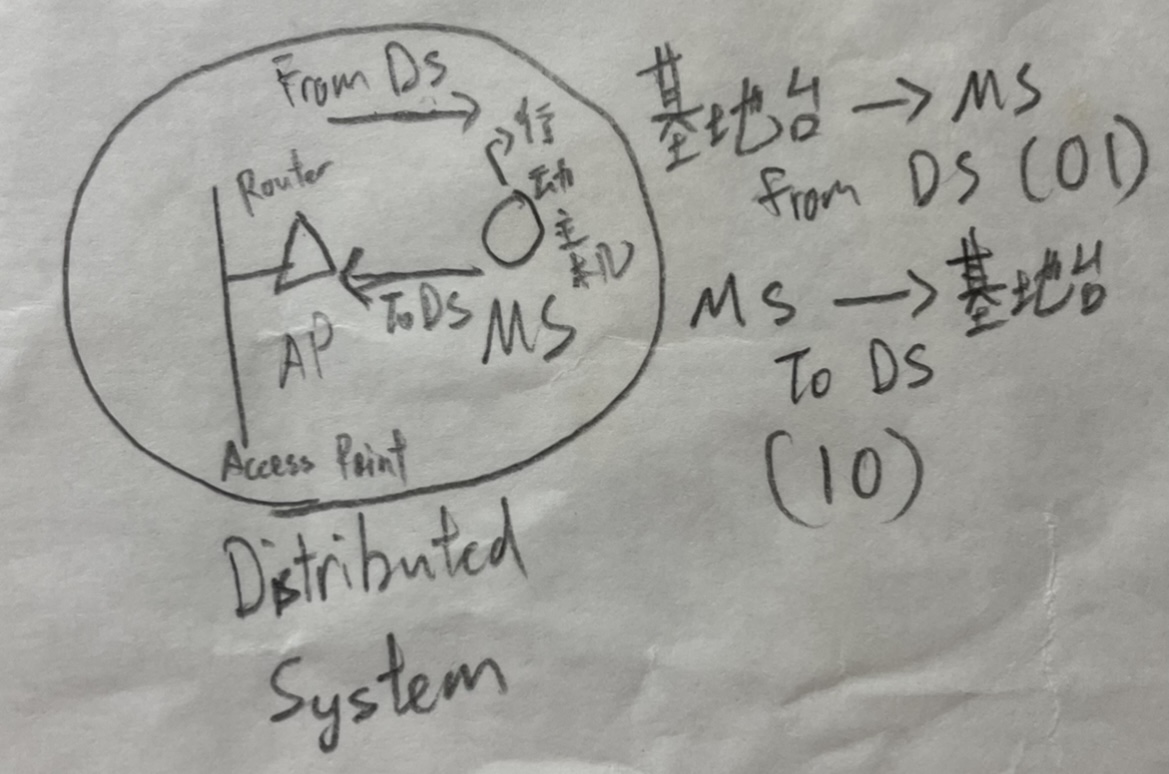 From DS
Router
行
动
主
机
To DS
AP
MS
Access Point
Distributed
System
基地台 → MS
from DS (01)
MS → 基地台
To DS
(10)